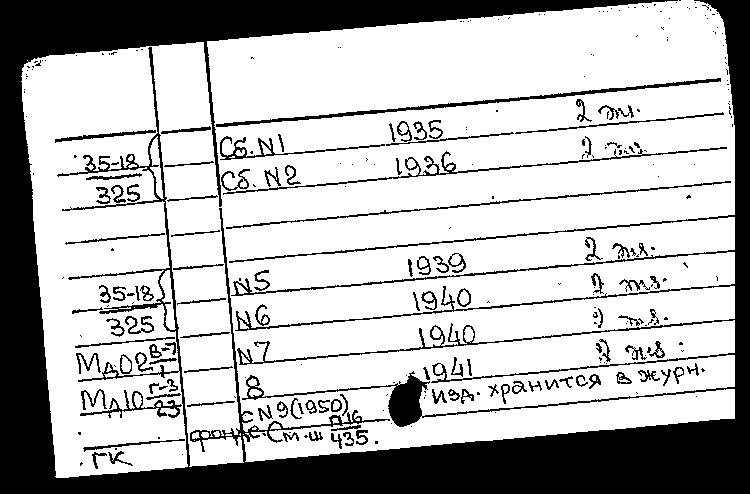 35-18
325
Сб. N1 1935 2 экз.
Сб. N2 1936 2 экз.
35-18
325
N5 1939 2 экз.
N6 1940 2 экз.
Мд02 В-7/1 N7 1940 2 экз.
Мд10 Г-3/23 8 1941 2 экз.
с N9 (1950) изд. хранится в журн.
фонде. См. ш П16/435.
ГК